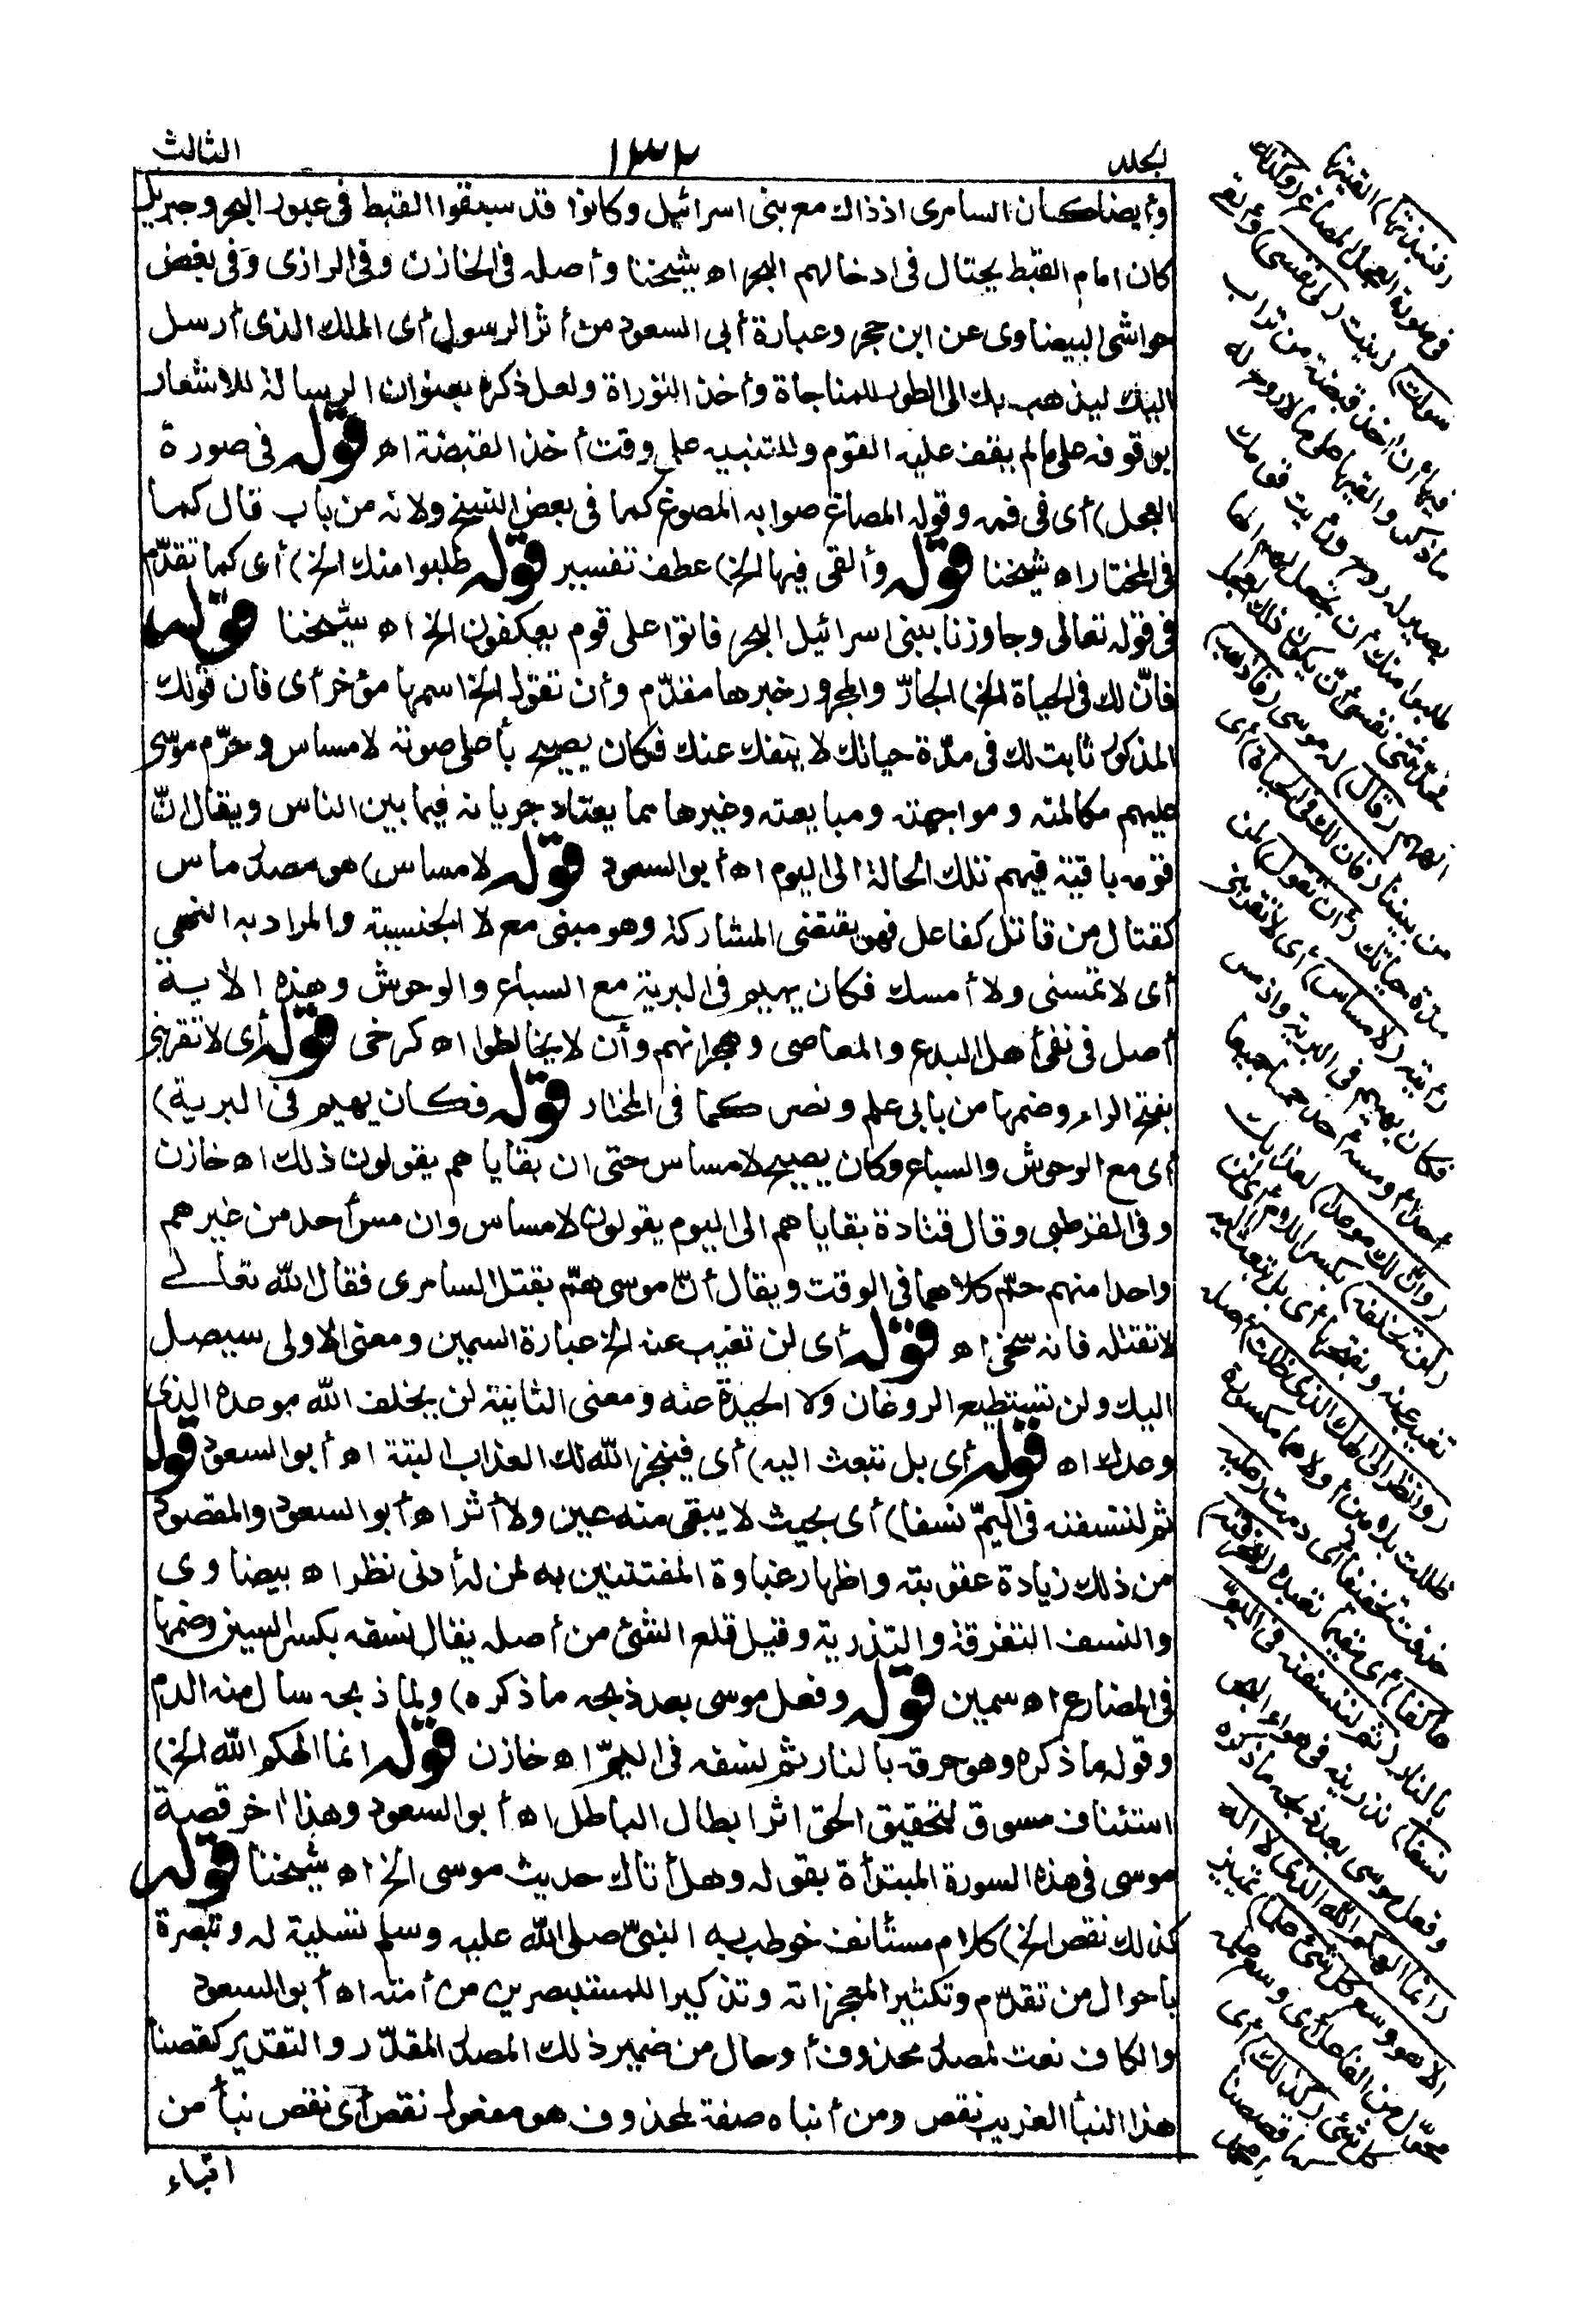 الجلد ١٣٢ الثالث
وأيضا كان السامرى اذ ذاك مع بنى اسرائيل وكانوا قد سبقوا القبط فى عبور البحر وجبريل
كان امام القبط يحتال فى ادخالهم البحر اه شيخنا وأصله فى الخازن وفى الرازى وفى بعض
حواشى البيضاوى عن ابن حجر وعبارة أبى السعود من أثر الرسول أى الملك الذى أرسل
اليك ليذهب بك الى الطور للمناجاة وأخذ التوراة ولعل ذكره بعنوان الرسالة للاشعار
بوقوفه على مالم يقف عليه القوم وللتنبيه على وقت أخذ القبضة اه قوله فى صورة
العجل) أى فى فمه وقوله المصاغ صوابه المصوغ كما فى بعض النسخ ولانه من باب قال كما
فى المختار اه شيخنا قوله وألقى فيها الخ) عطف تفسير قوله طلبوا منك الخ) أى كما تقدّم
فى قوله تعالى وجاوزنا ببنى اسرائيل البحر فاتوا على قوم يعكفون الخ اه شيخنا قوله
فانّ لك فى الحياة الخ) الجارّ والمجرور خبرها مقدّم وأن تقول الخ اسمها مؤخر أى فان قولك
المذكور ثابت لك فى مدّة حياتك لا ينفك عنك فكان يصيح بأعلى صوته لا مساس وحرّم موسى
عليهم مكالمته ومواجهته ومبايعته وغيرها مما يعتاد جريانه فيما بين الناس ويقال انّ
قومه باقية فيهم تلك الحالة الى اليوم اه أبو السعود قوله لا مساس) هو مصدر ماس
كقتال من قاتل كفاعل فهو يقتضى المشاركة وهو مبنى مع لا الجنسية والمراد به النهى
أى لا تمسنى ولا أمسك فكان يهيم فى البرية مع السباع والوحوش وهذه الأية
أصل فى نفى أهل البدع والمعاصى وهجرانهم وأن لا يخالطوا اه كرخى قوله أى لا تقربنى
بفتح الراء وضمها من بابى علم ونصر كما فى المختار قوله فكان يهيم فى البرية)
أى مع الوحوش والسباع وكان يصيح لا مساس حتى ان بقاياهم يقولون ذلك اه خازن
وفى القرطبى وقال قتادة بقاياهم الى اليوم يقولون لا مساس وان مس أحد من غيرهم
واحدا منهم حمّ كلاهما فى الوقت ويقال أنّ موسى همّ بقتل السامرى فقال الله تعالى
لا تقتله فانه سخى اه قوله أى لن تغيب عنه الخ عبارة السمين ومعنى الاولى سيصل
اليك ولن تستطيع الروغان ولا الحيدة عنه ومعنى الثانية لن يخلف الله موعده الذى
وعدك اه قوله أى بل تبعث اليه) أى فينجز الله لك العذاب البتة اه أبو السعود قوله
ثم لننسفنه فى اليمّ نسفا) أى بحيث لا يبقى منه عين ولا أثر اه أبو السعود والمقصود
من ذلك زيادة عقوبته واظهار غباوة المفتتنين به لمن له أدنى نظر اه بيضاوى
والنسف التفرقة والتذرية وقيل قلع الشئ من أصله يقال نسفه بكسر السين وضمها
فى المضارع اه سمين قوله وفعل موسى بعد ذبحه ماذكره) ولما ذبحه سال منه الدم
وقوله ماذكره وهو حرقه بالنار ثم نسفه فى اليمّ اه خازن قوله انما الهكم الله الخ)
استئناف مسوق لتحقيق الحق اثر ابطال الباطل اه أبو السعود وهذا اخر قصة
موسى فى هذه السورة المبتدأة بقوله وهل أتاك حديث موسى الخ اه شيخنا قوله
كذلك نقص الخ) كلام مستأنف خوطب به النبىّ صلى الله عليه وسلم تسلية له وتبصرة
باحوال من تقدّم وتكثيرا لمعجزاته وتذكيرا للمستبصرين من أمته اه أبو السعود
والكاف نعت لمصدر محذوف أو حال من ضمير ذلك المصدر المقدّر والتقدير كقصنا
هذا النبأ الغريب نقص ومن أنباء صفة لمحذوف هو مفعول نقص أى نقص نبأ من
انباء
(فنبذتها) القيتها
فى صورة العجل المصاغ (وكذلك
سولت) زينت (لى نفسى) وألقى
فيها أن اخذ قبضة من تراب
ماذكر والقيها على مالا روح له
يصير له روح ورأيت قومك
طلبوا منك أن تجعل لهم الها
فحدّثتنى نفسى أن يكون ذلك العجل
الههم (قال) له موسى (فاذهب)
من بيننا (فان لك فى الحياة) أى
مدّة حياتك (أن تقول) لمن
رأيته (لا مساس) أى لا تقربنى
فكان يهيم فى البرية واذا مس
أحدا أو مسه أحد حما جميعا
(وانّ لك موعدا) لعذابك
(لن تخلفه) بكسر اللام أى لن
تغيب عنه وبفتحها أى بل تبعث اليه
(وانظر الى الهك الذى ظلت) أصله
ظللت بلامين أولاهما مكسورة
حذفت تخفيفا أى دمت (عليه
عاكفا) أى مقيما تعبده (لنحرقنه)
بالنار (ثم لننسفنه فى اليمّ
نسفا) نذرينه فى هواء البحر
وفعل موسى بعد ذبحه ماذكره
(انما الهكم الله الذى لا اله
الا هو وسع كل شئ علما) تمييز
محوّل عن الفاعل أى وسع علمه
كل شئ (كذلك) أى
قصصنا